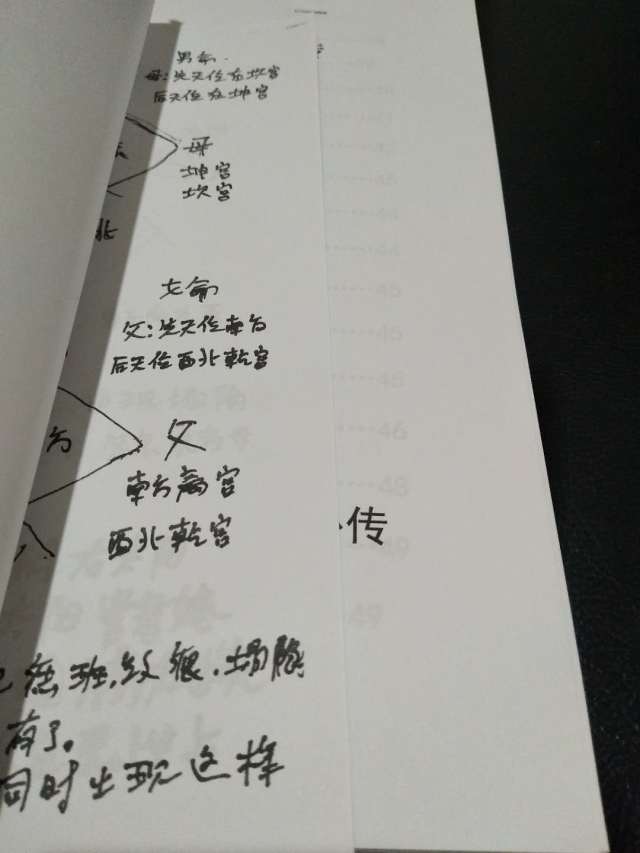 男命.
母:先天位在坎宫
后天位在坤宫
母
坤宫
坎宫
北
女命
父:先天位南方
后天位西北乾宫
方
父
南方离宫
西北乾宫
传
痣班,纹痕,塌陷
有了。
同时出现这样
45
44
44
45
45
45
46
48
49
49